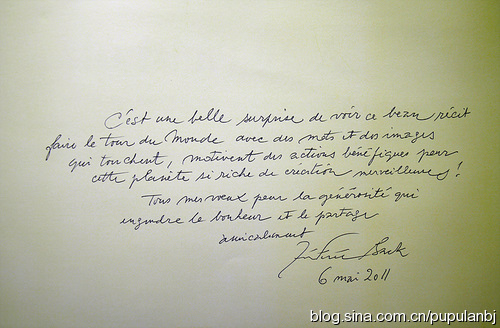 C'est une belle surprise de voir ce beau récit
faire le tour du Monde avec des mots et des images
qui touchent, motivent des actions bénéfiques pour
cette planète si riche de création merveilleuses!
Tous mes voeux pour la générosité qui
engendre le bonheur et le partage
amicalement
Back
6 mai 2011
blog.sina.com.cn/pupulanbj